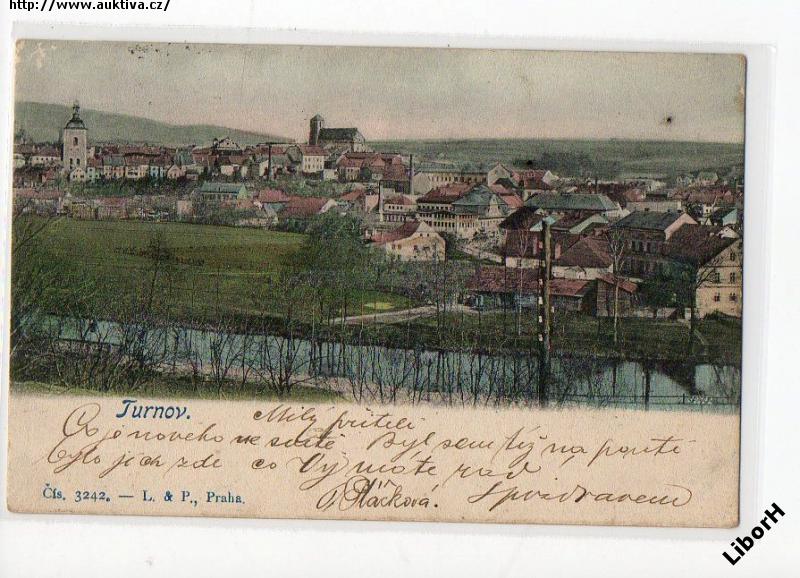 http://www.auktiva.cz/
Turnov.
Milý příteli
Co je nového ve světě Byl sem též na pouti
bylo jich zde co Vy máte rád
Sposdravem
P. Ptáčková.
Čís. 3242. — L. & P., Praha.
LiborH